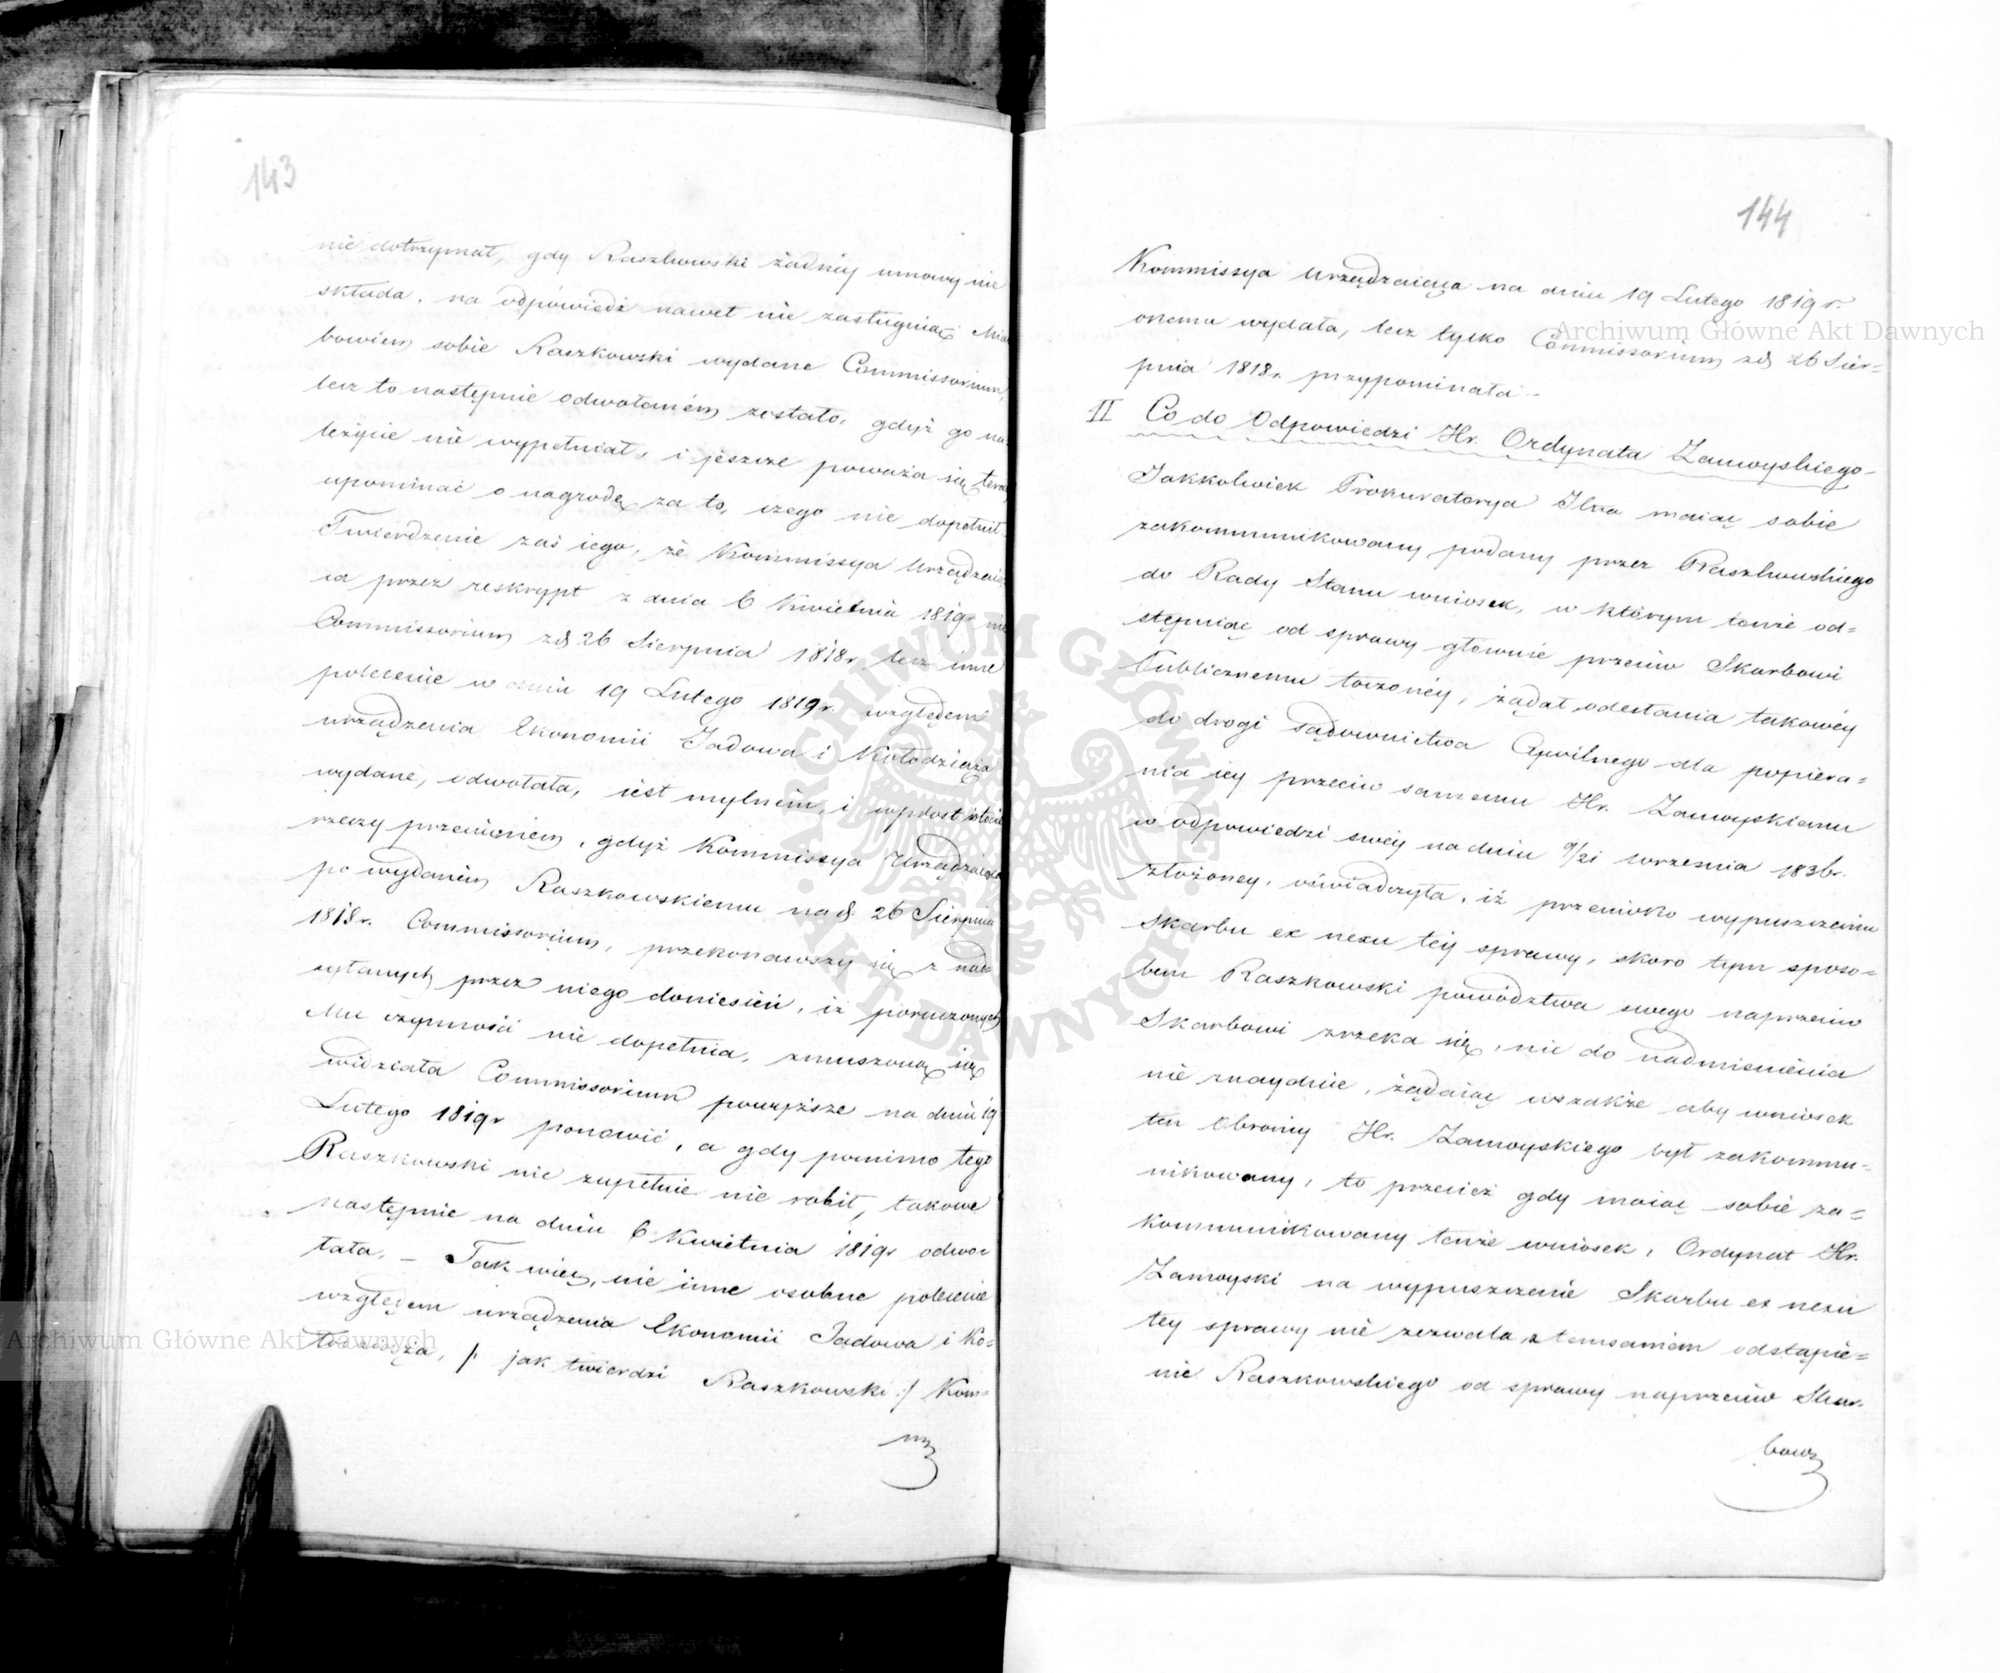 143
nie dotrzymał, gdy Raszkowski żadney umowy nie
składa. na odpowiedź nawet nie zasługuiąc Miał
bowiem sobie Raszkowski wydane Commissorium,
lecz to następnie odwołaném zostało, gdyż go na-
leżycie nie wypełniał, i jeszcze poważa się teraz
upominać o nagrodę za to, czego nie dopełnił
Twierdzenie zaś iego, że Kommissya Urządzaią-
ca przez reskrypt z dnia 6 Kwietnia 1819r nie
Commissorium zd 26 Sierpnia 1818r lecz inne
polecenie w dniu 19 Lutego 1819r. względem
urządzenia Ekonomii Jadowa i Kołodziąża
wydane, odwołała, iest mylném, i wprost istocie
rzeczy przeciwném, gdyż Kommissya Urządzaiąca
po wydaniem Raszkowskiemu na d. 26 Sierpnia
1818r. Commissorium, przekonawszy się z nad-
syłanych przez niego doniesień, iż poruczonych
Mu czynności nie dopełnia, zmuszoną się
widziała Commissorium powyższe na dniu 19
Lutego 1819r ponowić, a gdy pomimo tego
Raszkowski nic zupełnie nie robił, takowe
następnie na dniu 6 Kwietnia 1819r odwo-
łała. – Tak więc, nie inne osobne polecenie
względem urządzenia Ekonomii Jadowa i Ko-
łodziąża, /: jak twierdzi Raszkowski :/ Kom-
144
Kommissya Urządzaiąca na dniu 19 Lutego 1819r.
onemu wydała, lecz tylko Commissorium zd 26 Sier-
pnia 1818r. przypominała.
II Co do Odpowiedzi Hr. Ordynata Zamoyskiego
Jakkolwiek Prokuratorya Jlna maiąc sobie
zakommunikowany, podany przez Raszkowskiego
do Rady Stanu wniosek, w którym tenże od-
stępuiąc od sprawy głównie przeciw Skarbowi
Publicznemu toczonéy, żądał odesłania takowéy
do drogi sądownictwa Cywilnego dla popiera-
nia iey przeciw samemu Hr. Zamoyskiemu
w odpowiedzi swéy na dniu 9/21 września 1836r.
złożoney, oświadczyła, iż przeciwko wypuszczeniu
Skarbu ex nexu téy sprawy, skoro tym sposo-
bem Raszkowski powództwa swego naprzeciw
Skarbowi zrzeka się, nic do nadmienienia
nie znayduie, żądaiąc wszakże aby wniosek
ten Obrony Hr. Zamoyskiego był zakommu-
nikowany, to przecież gdy maiąc sobie za-
kommunikowany tenże wniosek, Ordynat Hr.
Zamoyski na wypuszczenie Skarbu ex nexu
tey sprawy nie zezwala, a temsamem odstąpie-
nie Raszkowskiego od sprawy naprzeciw Skar-
bowi
Archiwum Główne Akt Dawnych
Archiwum Główne Akt Dawnych
ARCHIWUM GŁÓWNE AKT DAWNYCH